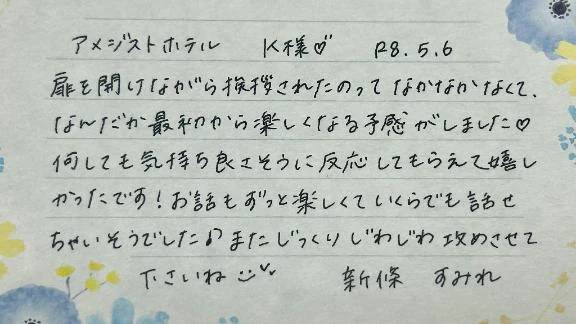 アメジストホテル K様♡ R8.5.6
扉を開けながら挨拶されたのって なかなかなくて、
なんだか最初から楽しくなる予感がしました♡
何しても気持ち良さそうに反応してもらえて嬉し
かったです！お話もずっと楽しくていくらでも話せ
ちゃいそうでした♪またじっくりじわじわ攻めさせて
下さいね 新條 すみれ